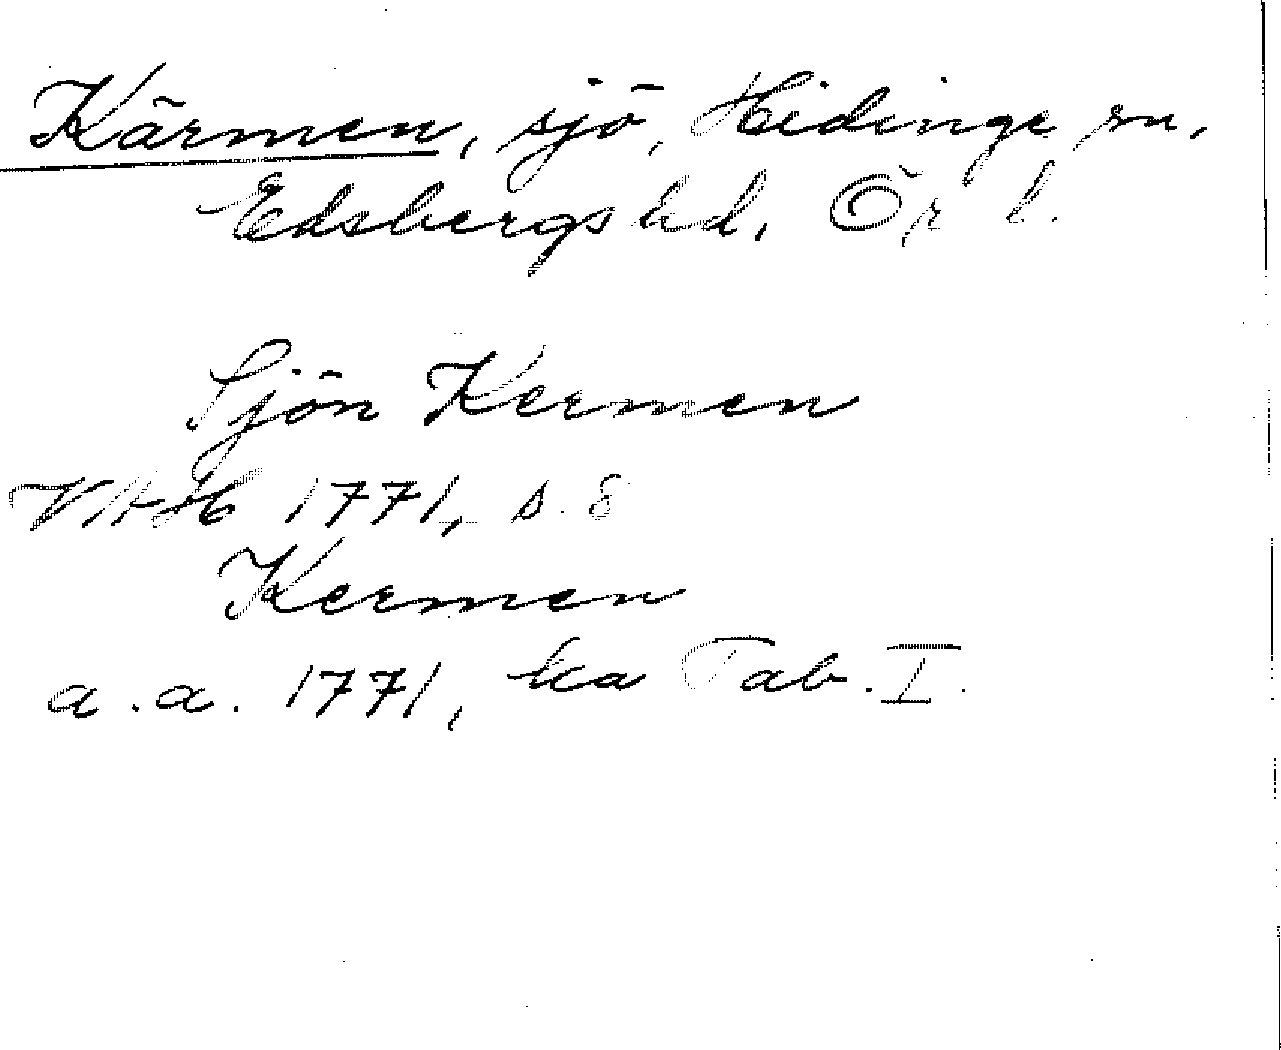 Kärmen, sjö, Hidinge sn,
Edsbergs hd, Ör l.
Sjön Kermen
VAH 1771, s. 8
Kermen
a. a. 1771, ka Tab. I.